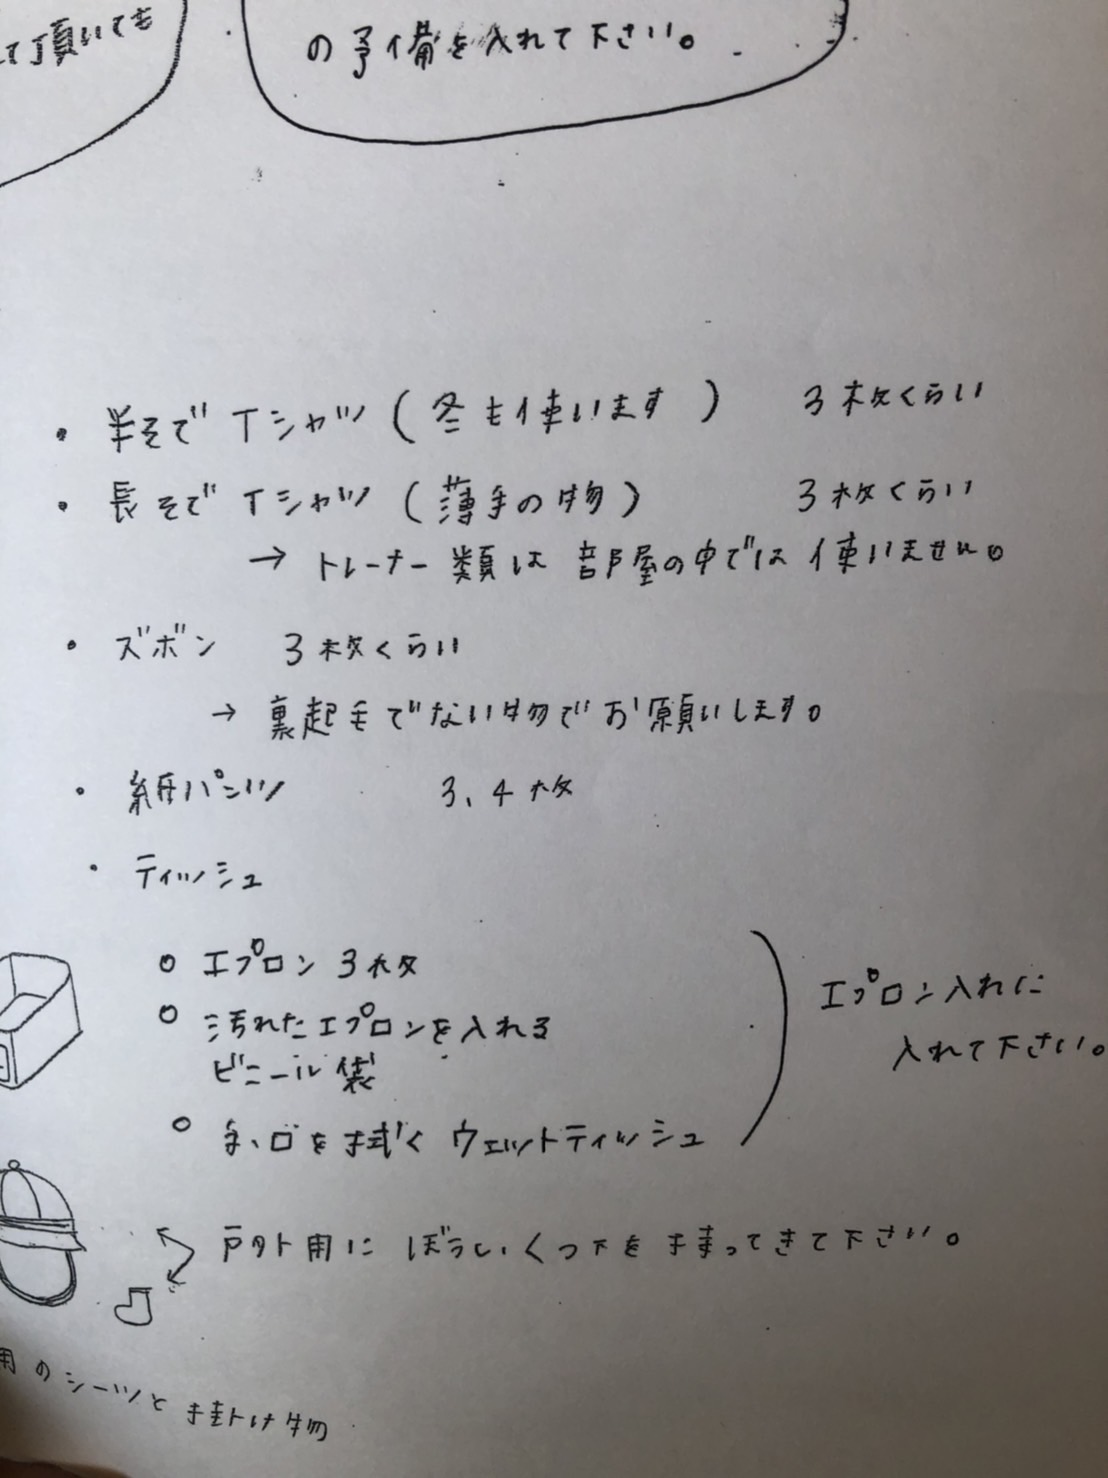 て頂いても
の予備を入れて下さい。
・半そでTシャツ(冬も使います) 3枚くらい
・長そでTシャツ(薄手の物) 3枚くらい
→トレーナー類は部屋の中では使いません。
・ズボン 3枚くらい
→裏起毛でない物でお願いします。
・紙パンツ 3、4枚
・ティッシュ
○エプロン 3枚
○汚れたエプロンを入れる
ビニール袋
○手、口を拭くウェットティッシュ
エプロン入れに
入れて下さい。
戸外用にぼうし、くつ下を持ってきて下さい。
用のシーツと掛け物